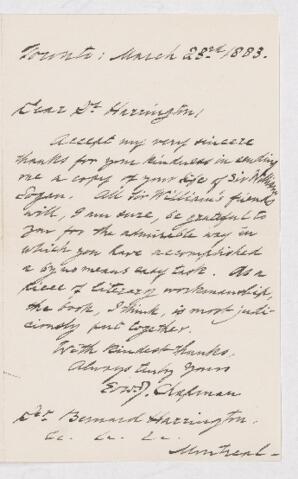 Toronto: March 23rd 1883.
Dear Dr Harrington,
Accept my very sincere
thanks for your kindness in sending
me a copy of your life of Sir William
Logan. All Sir William's friends
will, I am sure, be grateful to
you for the admirable way in
which you have accomplished
a by no means easy task. As a
piece of literary workmanship,
the book, I think, is most judi-
ciously put together.
With kindest thanks.
Always truly yours
Edw. J. Chapman
Dr. Bernard Harrington.
&c. &c. &c.
Montreal